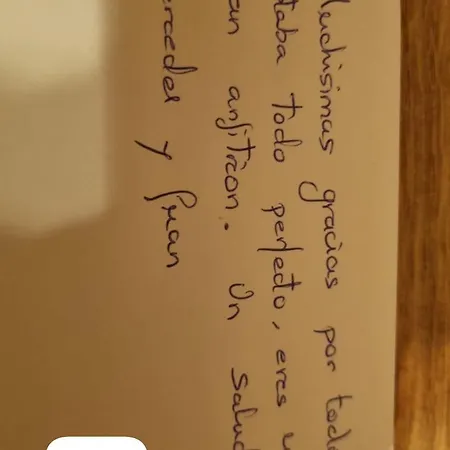 uchisimas gracias por tod
taba todo perfecto, eres u
an anfitrion. Un salud
ercedes y Juan